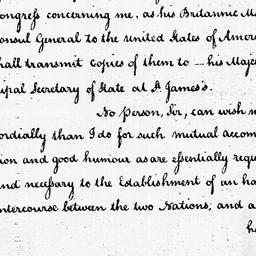 Congreſs concerning me, as his Britannic M
onsul General to the united States of Amer
hall transmit copies of them to — his Maje
cipal Secretary of State at St James's.
No Person, Sir, can wish m
ordially than I do for such mutual accom
ion and good humour as are eſsentially requi
nd neceſsary to the Establishment of an ha
ntercourse between the two Nations; and a
h